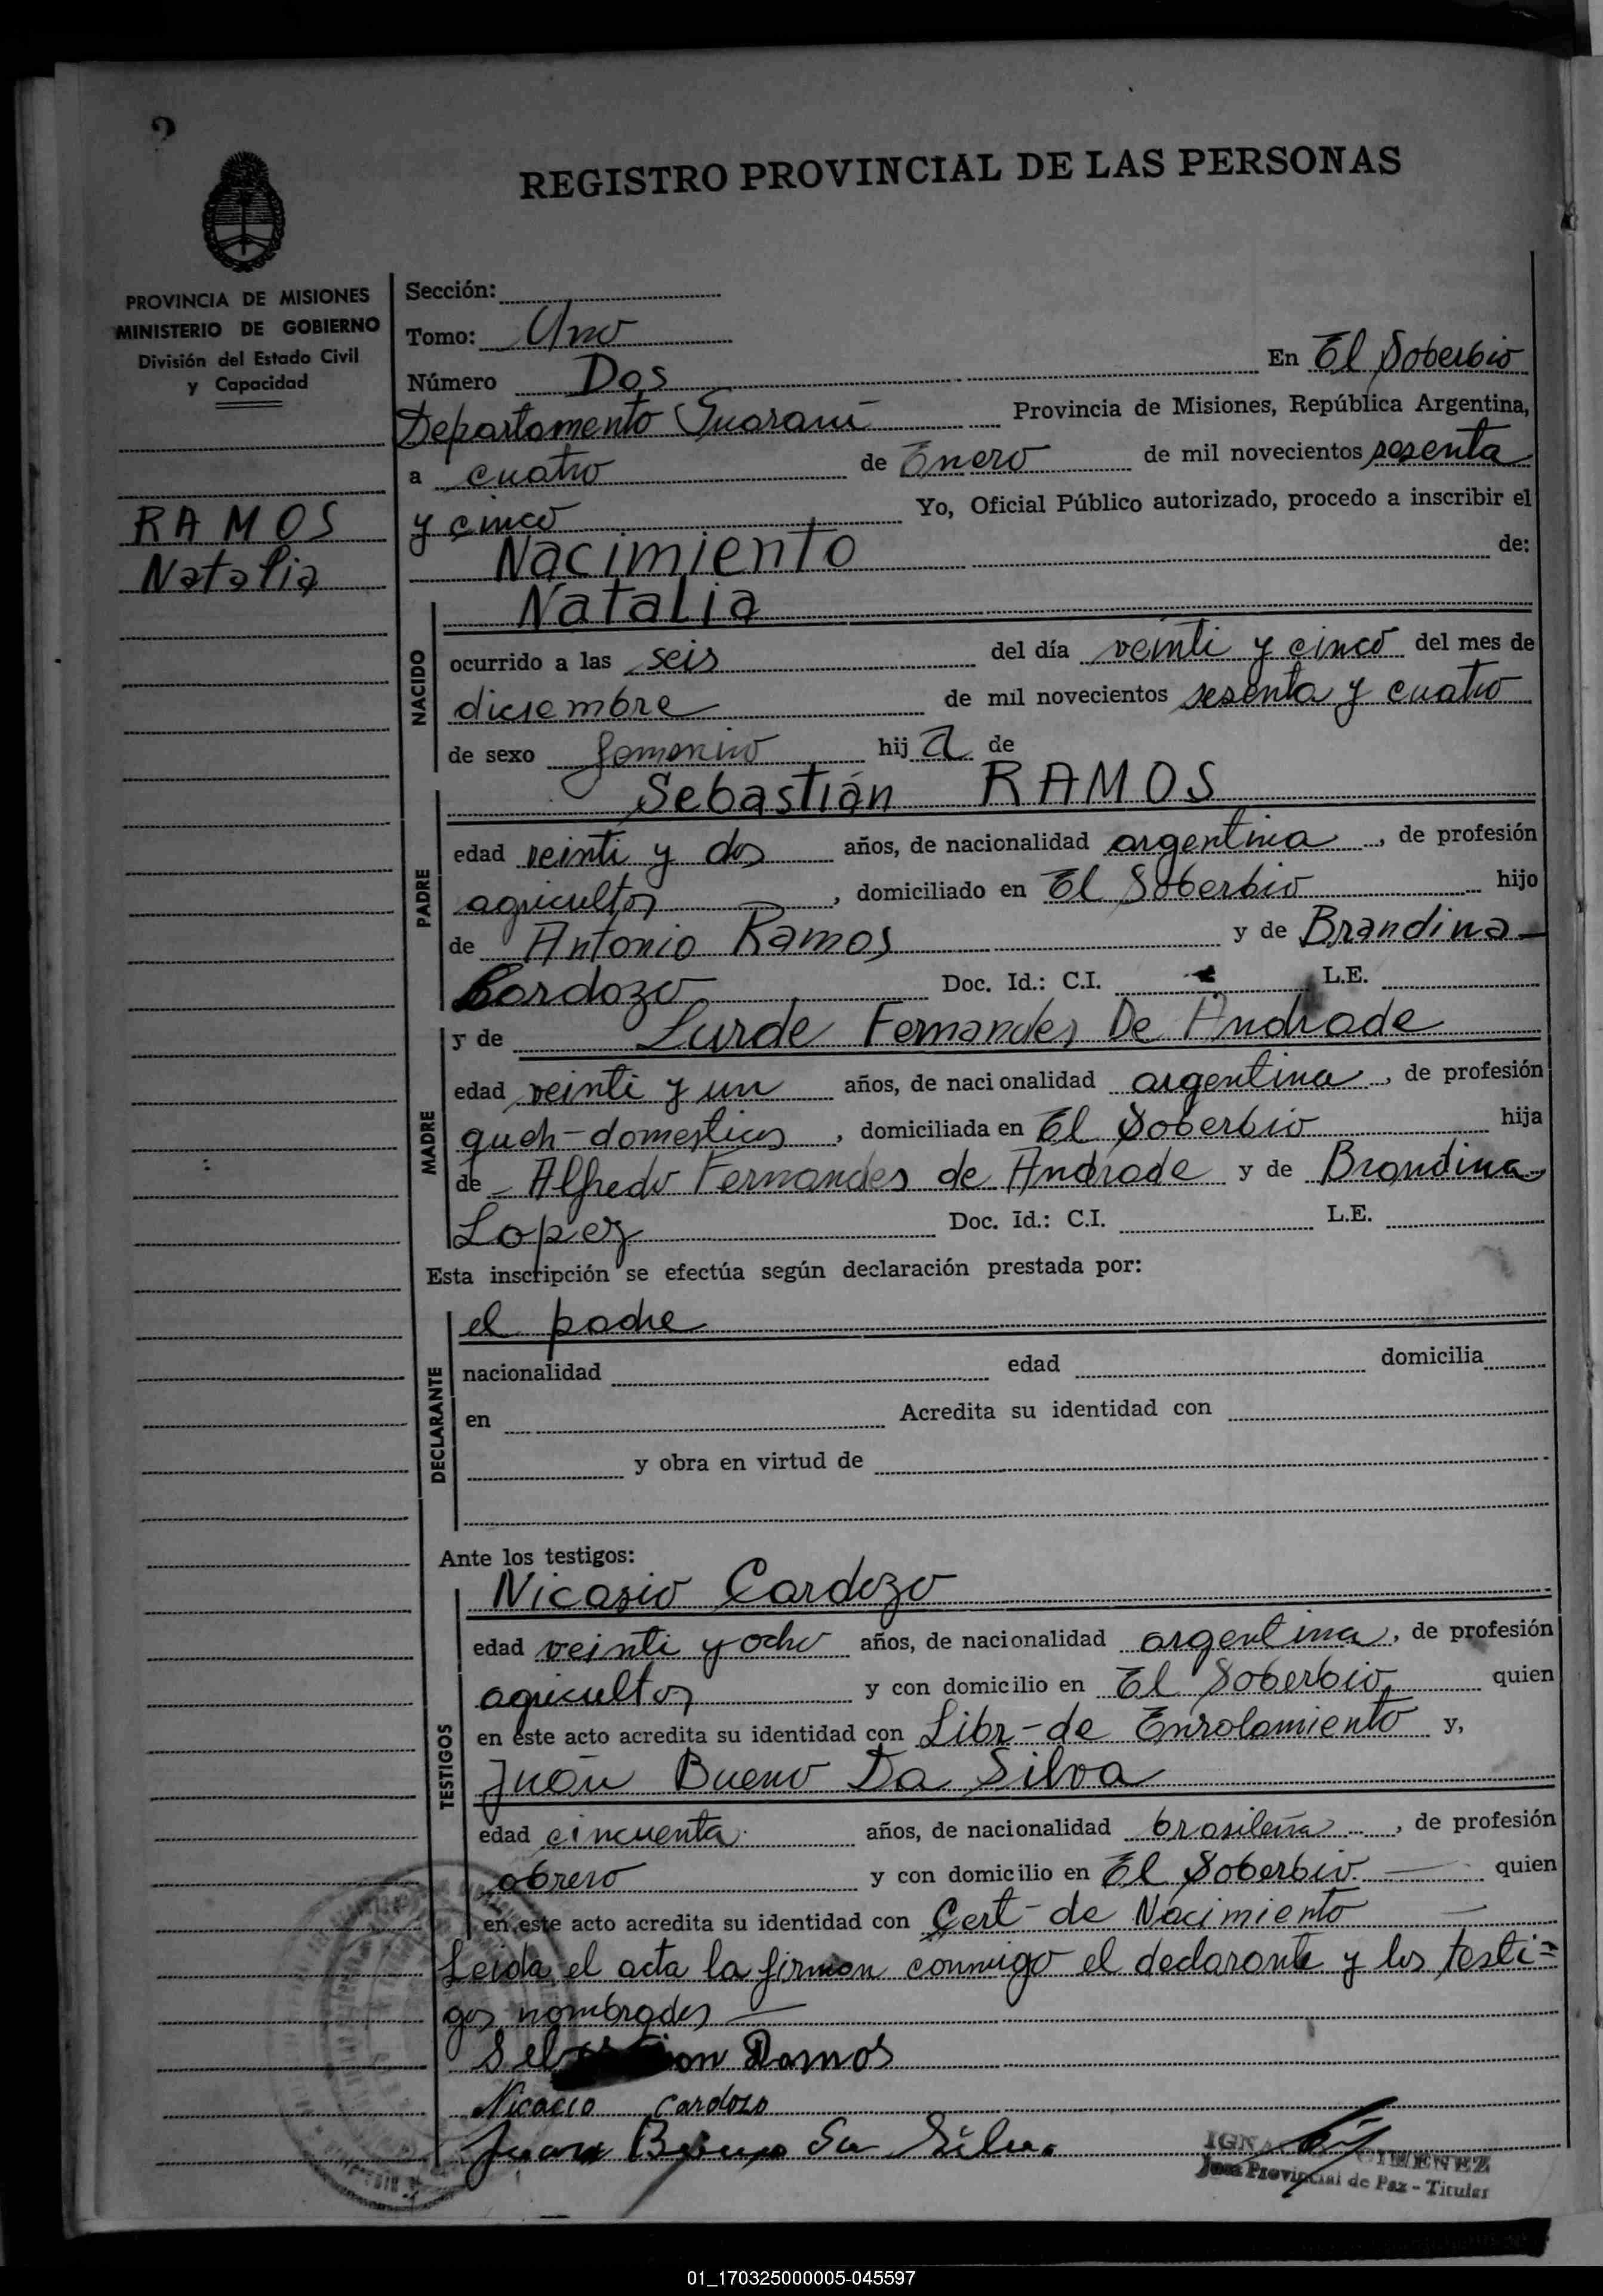 2
REGISTRO PROVINCIAL DE LAS PERSONAS
PROVINCIA DE MISIONES
MINISTERIO DE GOBIERNO
División del Estado Civil
y Capacidad
RAMOS
Natalia
Sección:
Tomo: Uno
Número Dos En El Soberbio
Departamento Guaraní Provincia de Misiones, República Argentina,
a cuatro de Enero de mil novecientos sesenta
y cinco Yo, Oficial Público autorizado, procedo a inscribir el
Nacimiento de:
NACIDO
Natalia
ocurrido a las seis del día veinti y cinco del mes de
diciembre de mil novecientos sesenta y cuatro
de sexo femenino hij a de
PADRE
Sebastián RAMOS
edad veinti y dos años, de nacionalidad argentina, de profesión
agricultor, domiciliado en El Soberbio hijo
de Antonio Ramos y de Brandina
Cardozo Doc. Id.: C.I. L.E.
MADRE
y de Lurde Fernandes De Andrade
edad veinti y un años, de nacionalidad argentina, de profesión
queh-domesticos, domiciliada en El Soberbio hija
de Alfredo Fernandes de Andrade y de Brandina
Lopez Doc. Id.: C.I. L.E.
Esta inscripción se efectúa según declaración prestada por:
DECLARANTE
el padre
nacionalidad edad domicilia
en Acredita su identidad con
y obra en virtud de
Ante los testigos:
TESTIGOS
Nicasio Cardozo
edad veinti y ocho años, de nacionalidad argentina, de profesión
agricultor y con domicilio en El Soberbio, quien
en este acto acredita su identidad con Libr-de Enrolamiento y,
Juan Bueno Da Silva
edad cincuenta años, de nacionalidad brasileña, de profesión
obrero y con domicilio en El Soberbio. quien
en este acto acredita su identidad con Cert-de Nacimiento
Leida el acta la firman conmigo el declarante y los testi=
gos nombrados
Ramos
Nicacio Cardozo
Juan Bueno Da Silva
GIMENEZ
Juez Provincial de Paz - Titular
01_170325000005-045597